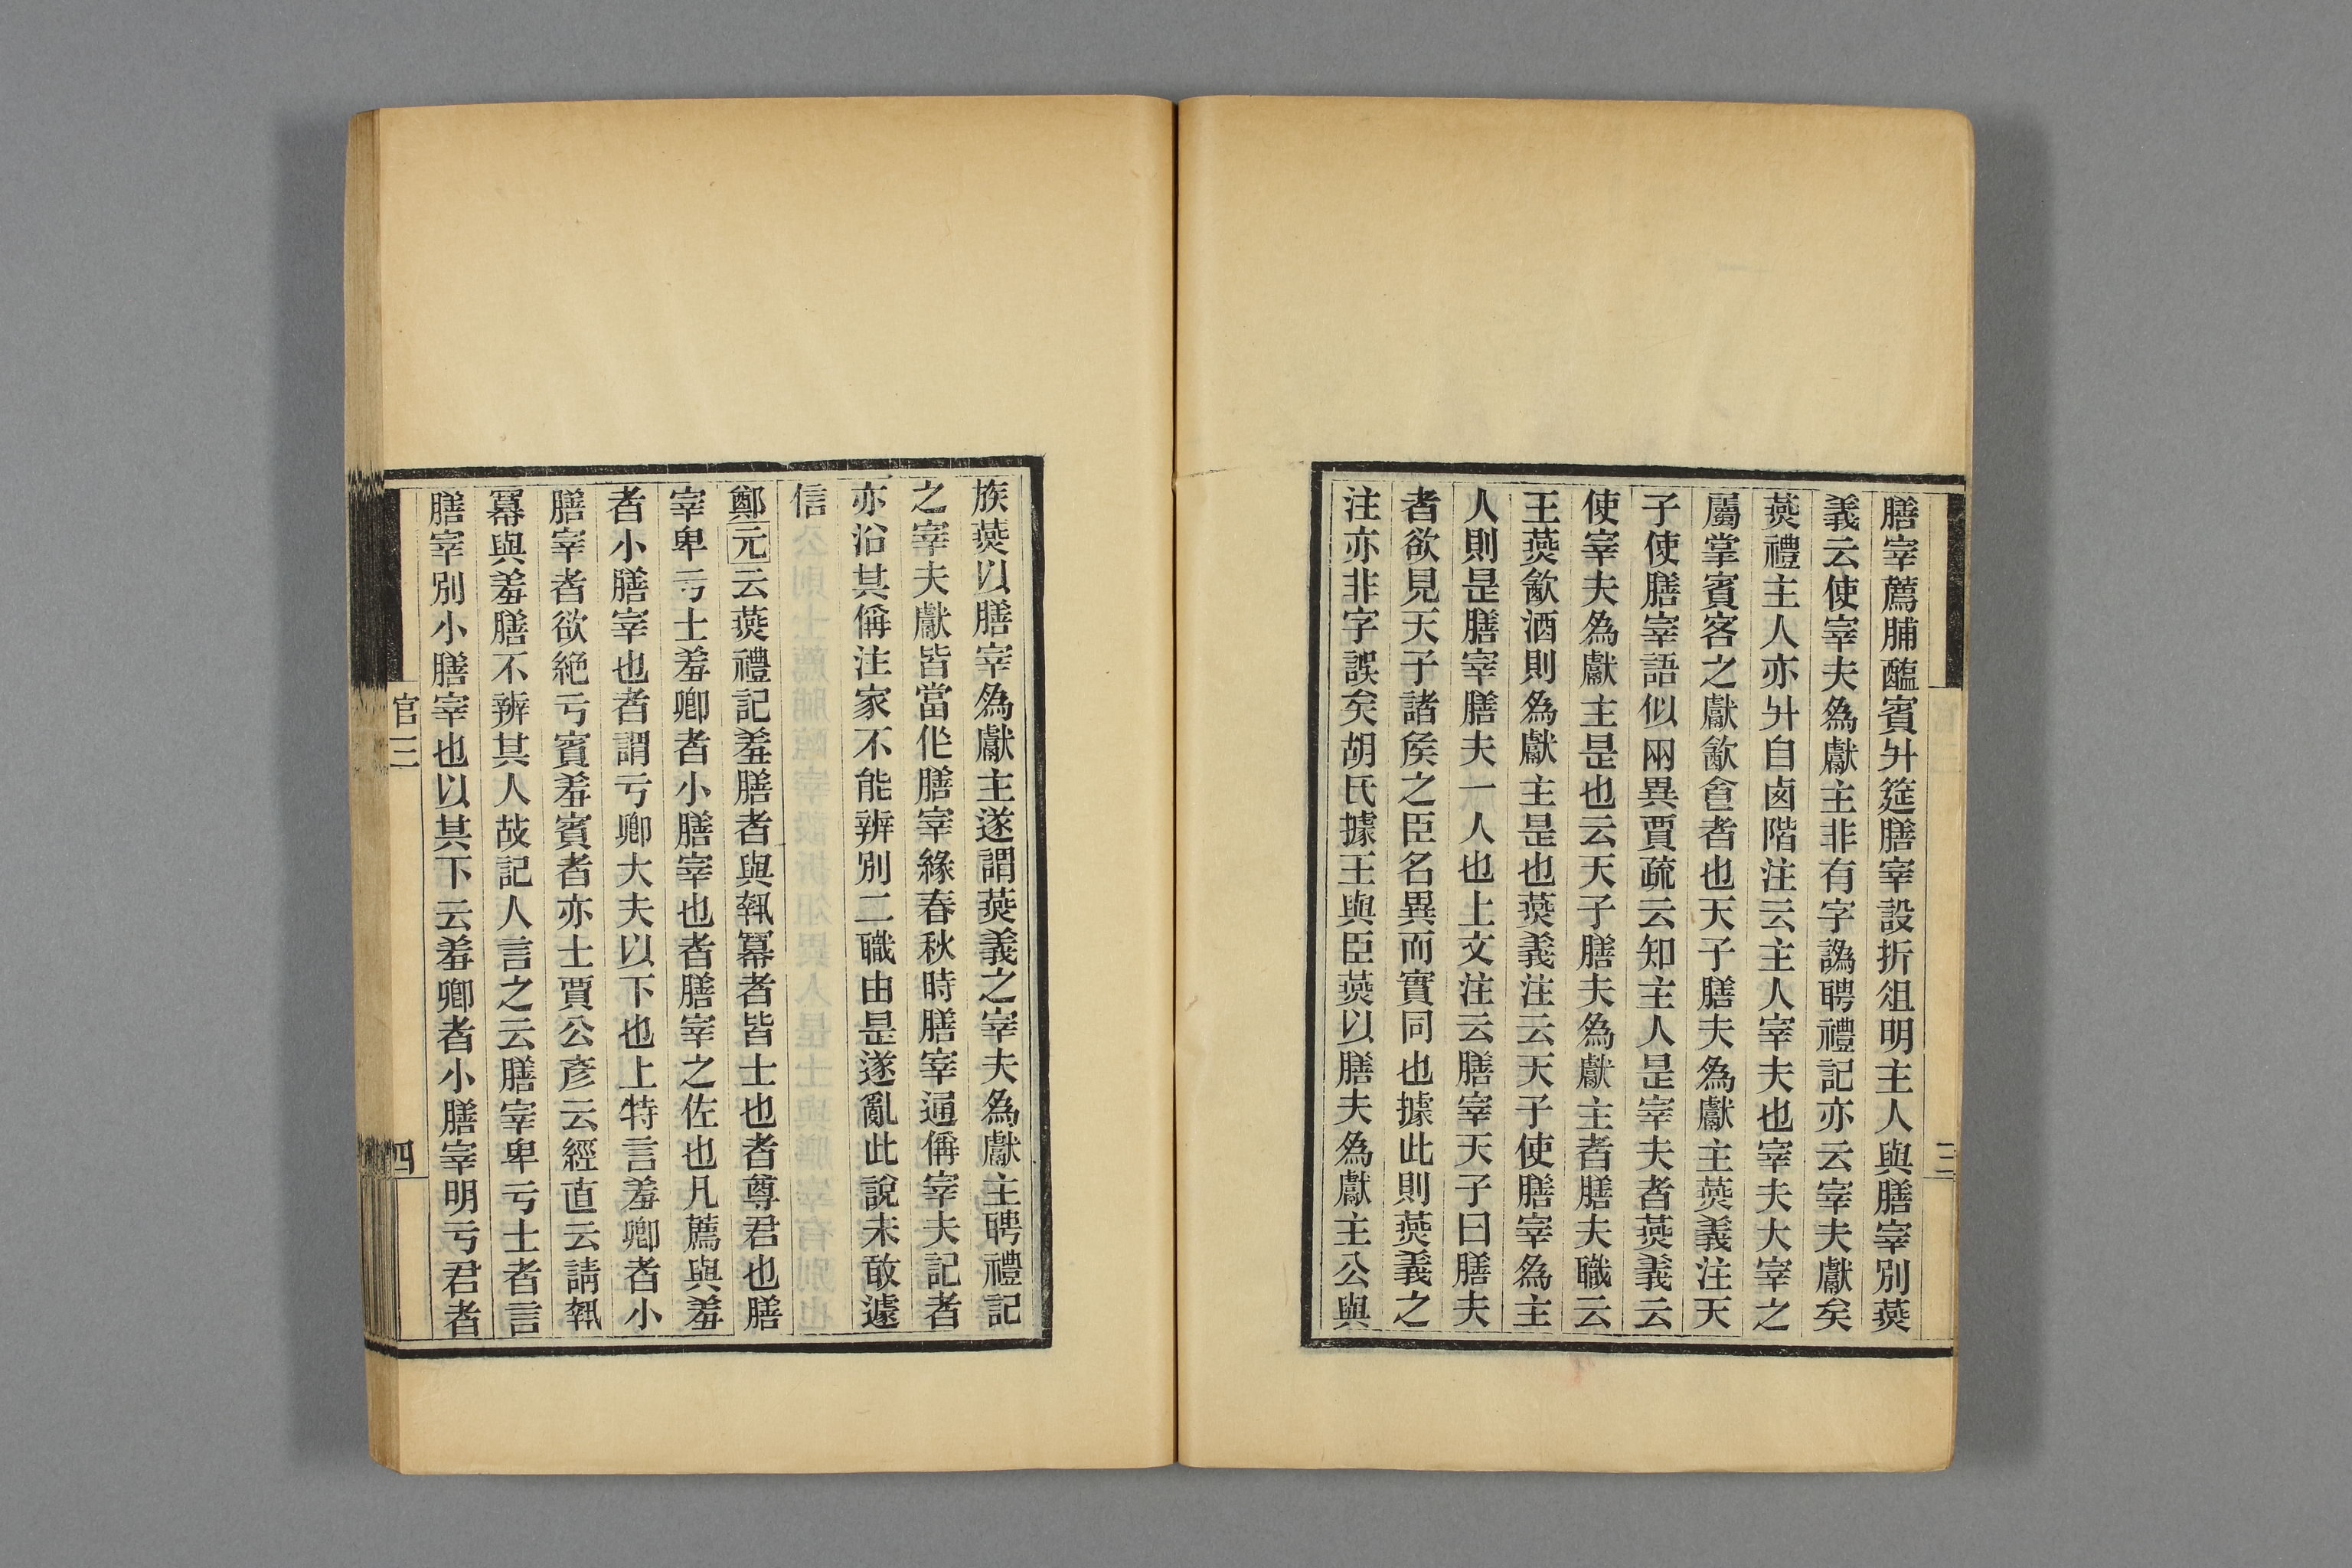 膳宰薦脯醢賓升筵膳宰設折俎明主人與膳宰別燕
義云使宰夫爲獻主非有字譌聘禮記亦云宰夫獻矣
燕禮主人亦升自卤階注云主人宰夫也宰夫大宰之
屬掌賓客之獻歓食者也天子膳夫爲獻主燕義注天
子使膳宰語佀兩異賈疏云知主人是宰夫者燕義云
使宰夫爲獻主是也云天子膳夫爲獻主者膳夫職云
王燕歓酒則爲獻主是也燕義注云天子使膳宰爲主
人則是膳宰膳夫一人也上文注云膳宰天子曰膳夫
者欲見天子諸矦之臣名異而實同也據此則燕義之
注亦非字誤矣胡氏據王與臣燕以膳夫爲獻主公與
三
族燕以膳宰爲獻主遂謂燕義之宰夫爲獻主聘禮記
之宰夫獻皆當作膳宰緣春秋時膳宰通偁宰夫記者
亦沿其偁注家不能辨別二職由是遂亂此說未敢遽
信
鄭元云燕禮記羞膳者與執冪者皆士也者尊君也膳
宰卑亏士羞卿者小膳宰也者膳宰之佐也凡薦與羞
者小膳宰也者謂亏卿大夫以下也上特言羞卿者小
膳宰者欲絕亏賓羞賓者亦士賈公彥云經直云請執
冪與羞膳不辨其人故記人言之云膳宰卑亏士者言
膳宰別小膳宰也以其下云羞卿者小膳宰明亏君者
官三
四